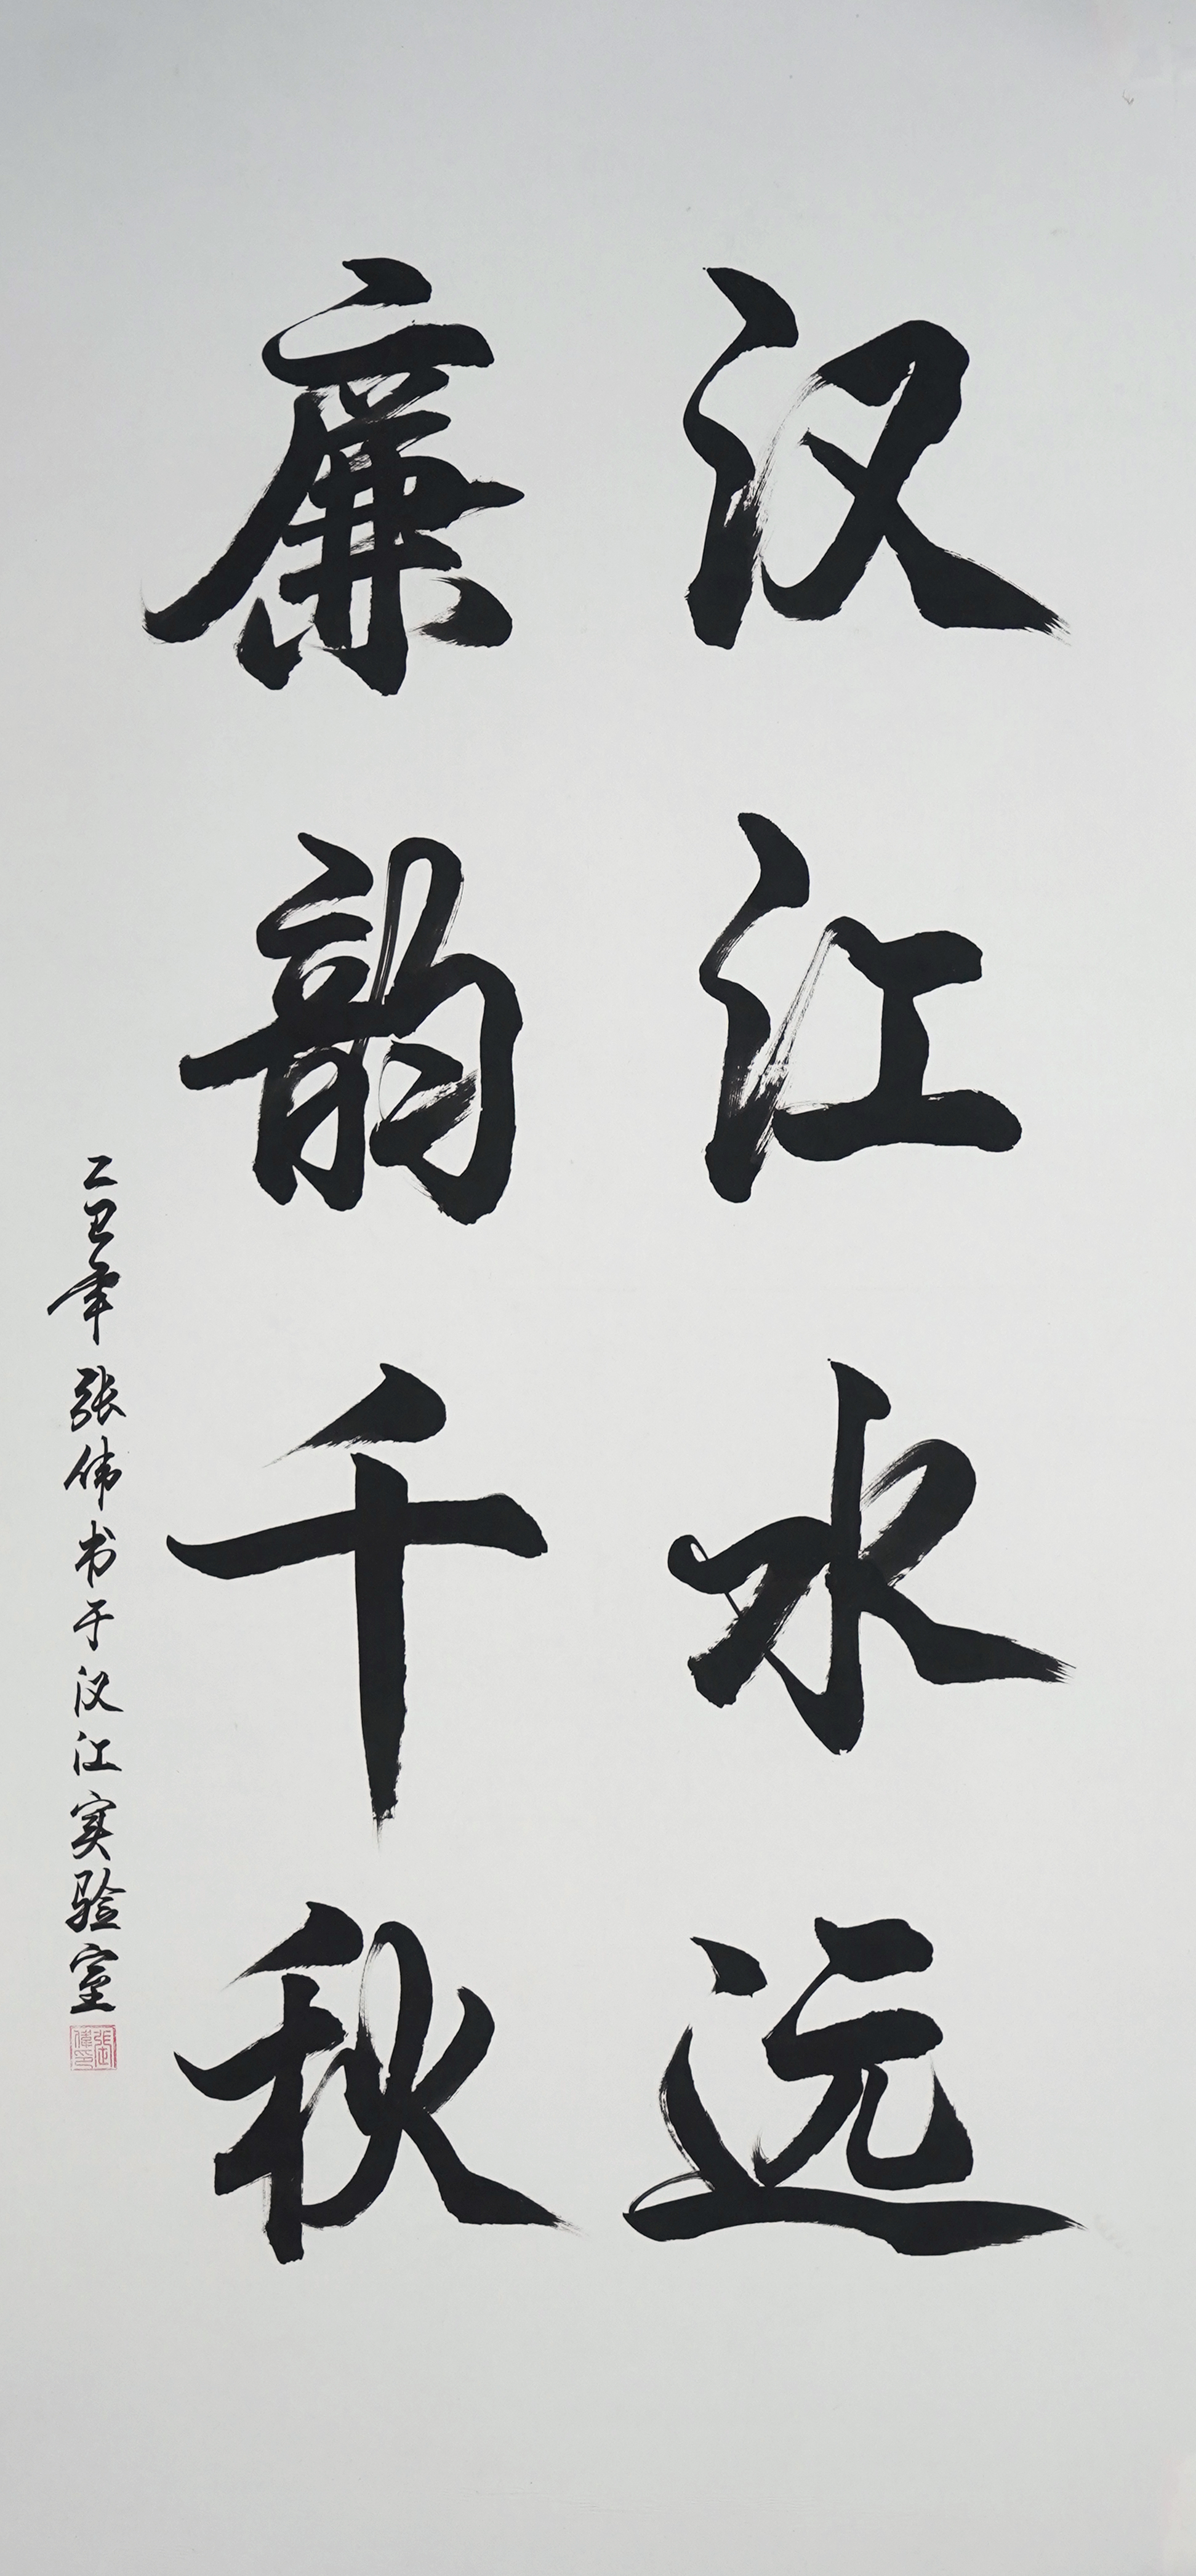 汉江水远
廉韵千秋
乙巳年 张伟书于汉江实验室
张伟印